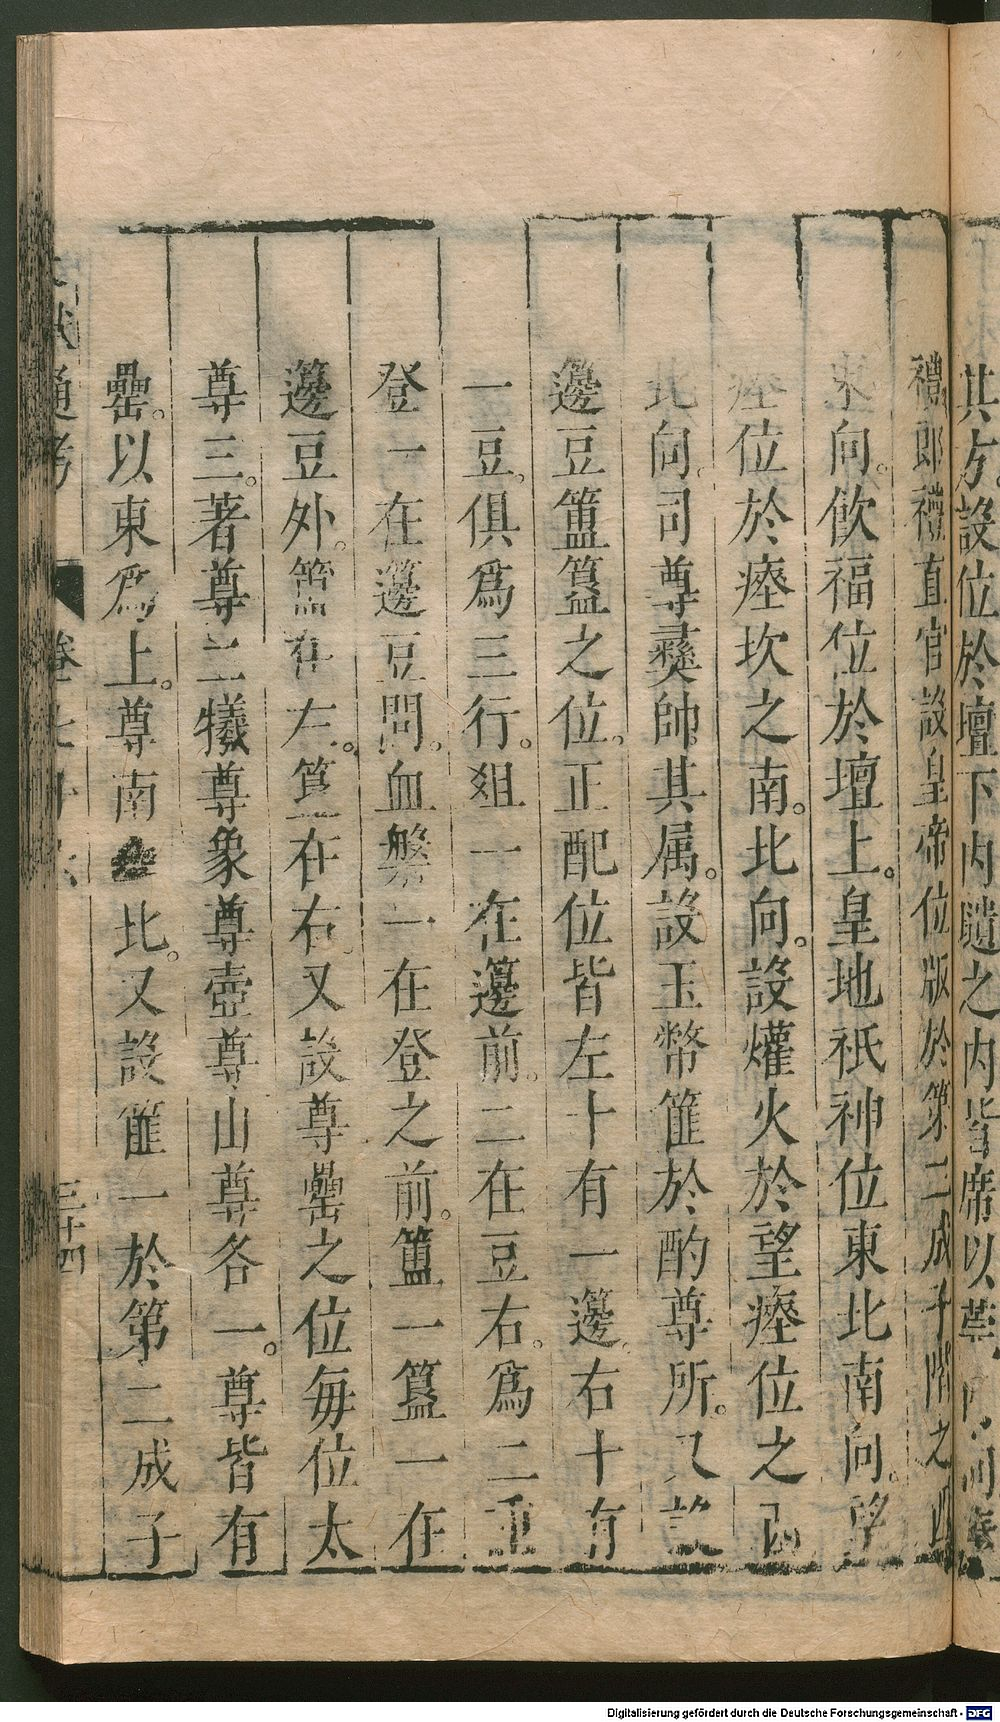 其方。設位於壇下内壝之内皆席以莞
禮郎禮直官設皇帝位版於第二成子階之西
東向。飲福位於壇上。皇地祇神位東北南向。望
瘞位於瘞坎之南。北向。設爟火於望瘞位之
北向。司尊彞帥其属。設玉幣篚於酌尊所。又設
籩豆簠簋之位。正配位皆左十有一籩。右十有
一豆。俱爲三行。俎一在籩前。二在豆右。爲二重
登一在籩豆間。血槃一在登之前。簠一簋一在
籩豆外。簠在左。簋在右又設尊罍之位毎位太
尊三。著尊二犧尊象尊壺尊山尊各一。尊皆有
罍。以東爲上。尊南北。又設篚一於第二成子
文獻通考 卷七十六 三十四
Digitalisierung gefördert durch die Deutsche Forschungsgemeinschaft - DFG